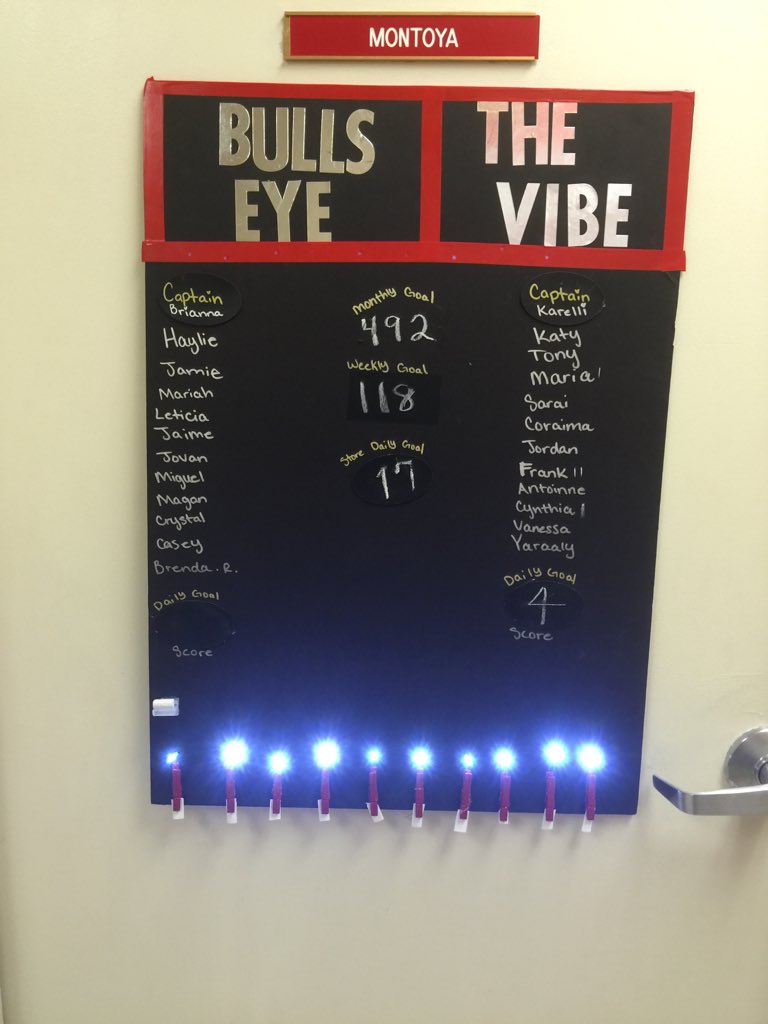 MONTOYA
BULLS
EYE
THE
VIBE
Captain
Brianna
Haylie
Jamie
Mariah
Leticia
Jaime
Jovan
Miguel
Magan
Crystal
Casey
Brenda.R.
Daily Goal
Score
Monthly Goal
492
Weekly Goal
118
Store Daily Goal
17
Captain
Karelli
Katy
Tony
Maria
Sarai
Coraima
Jordan
Frank II
Antoinne
Cynthia
Vanessa
Yaraaly
Daily Goal
4
Score